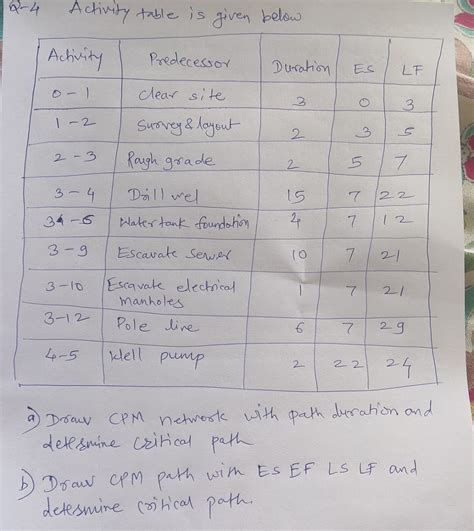 Q-4 Activity table is given below
Activity Predecessor Duration ES LF
0-1 Clear site 3 0 3
1-2 Survey & layout 2 3 5
2-3 Rough grade 2 5 7
3-4 Drill wel 15 7 22
3-6 Water tank foundation 4 7 12
3-9 Escavate sewer 10 7 21
3-10 Escavate electrical manholes 1 7 21
3-12 Pole line 6 7 29
4-5 Well pump 2 22 24
a) Draw CPM network with path duration and
detesmine critical path
b) Draw CPM path with ES EF LS LF and
detesmine critical path.